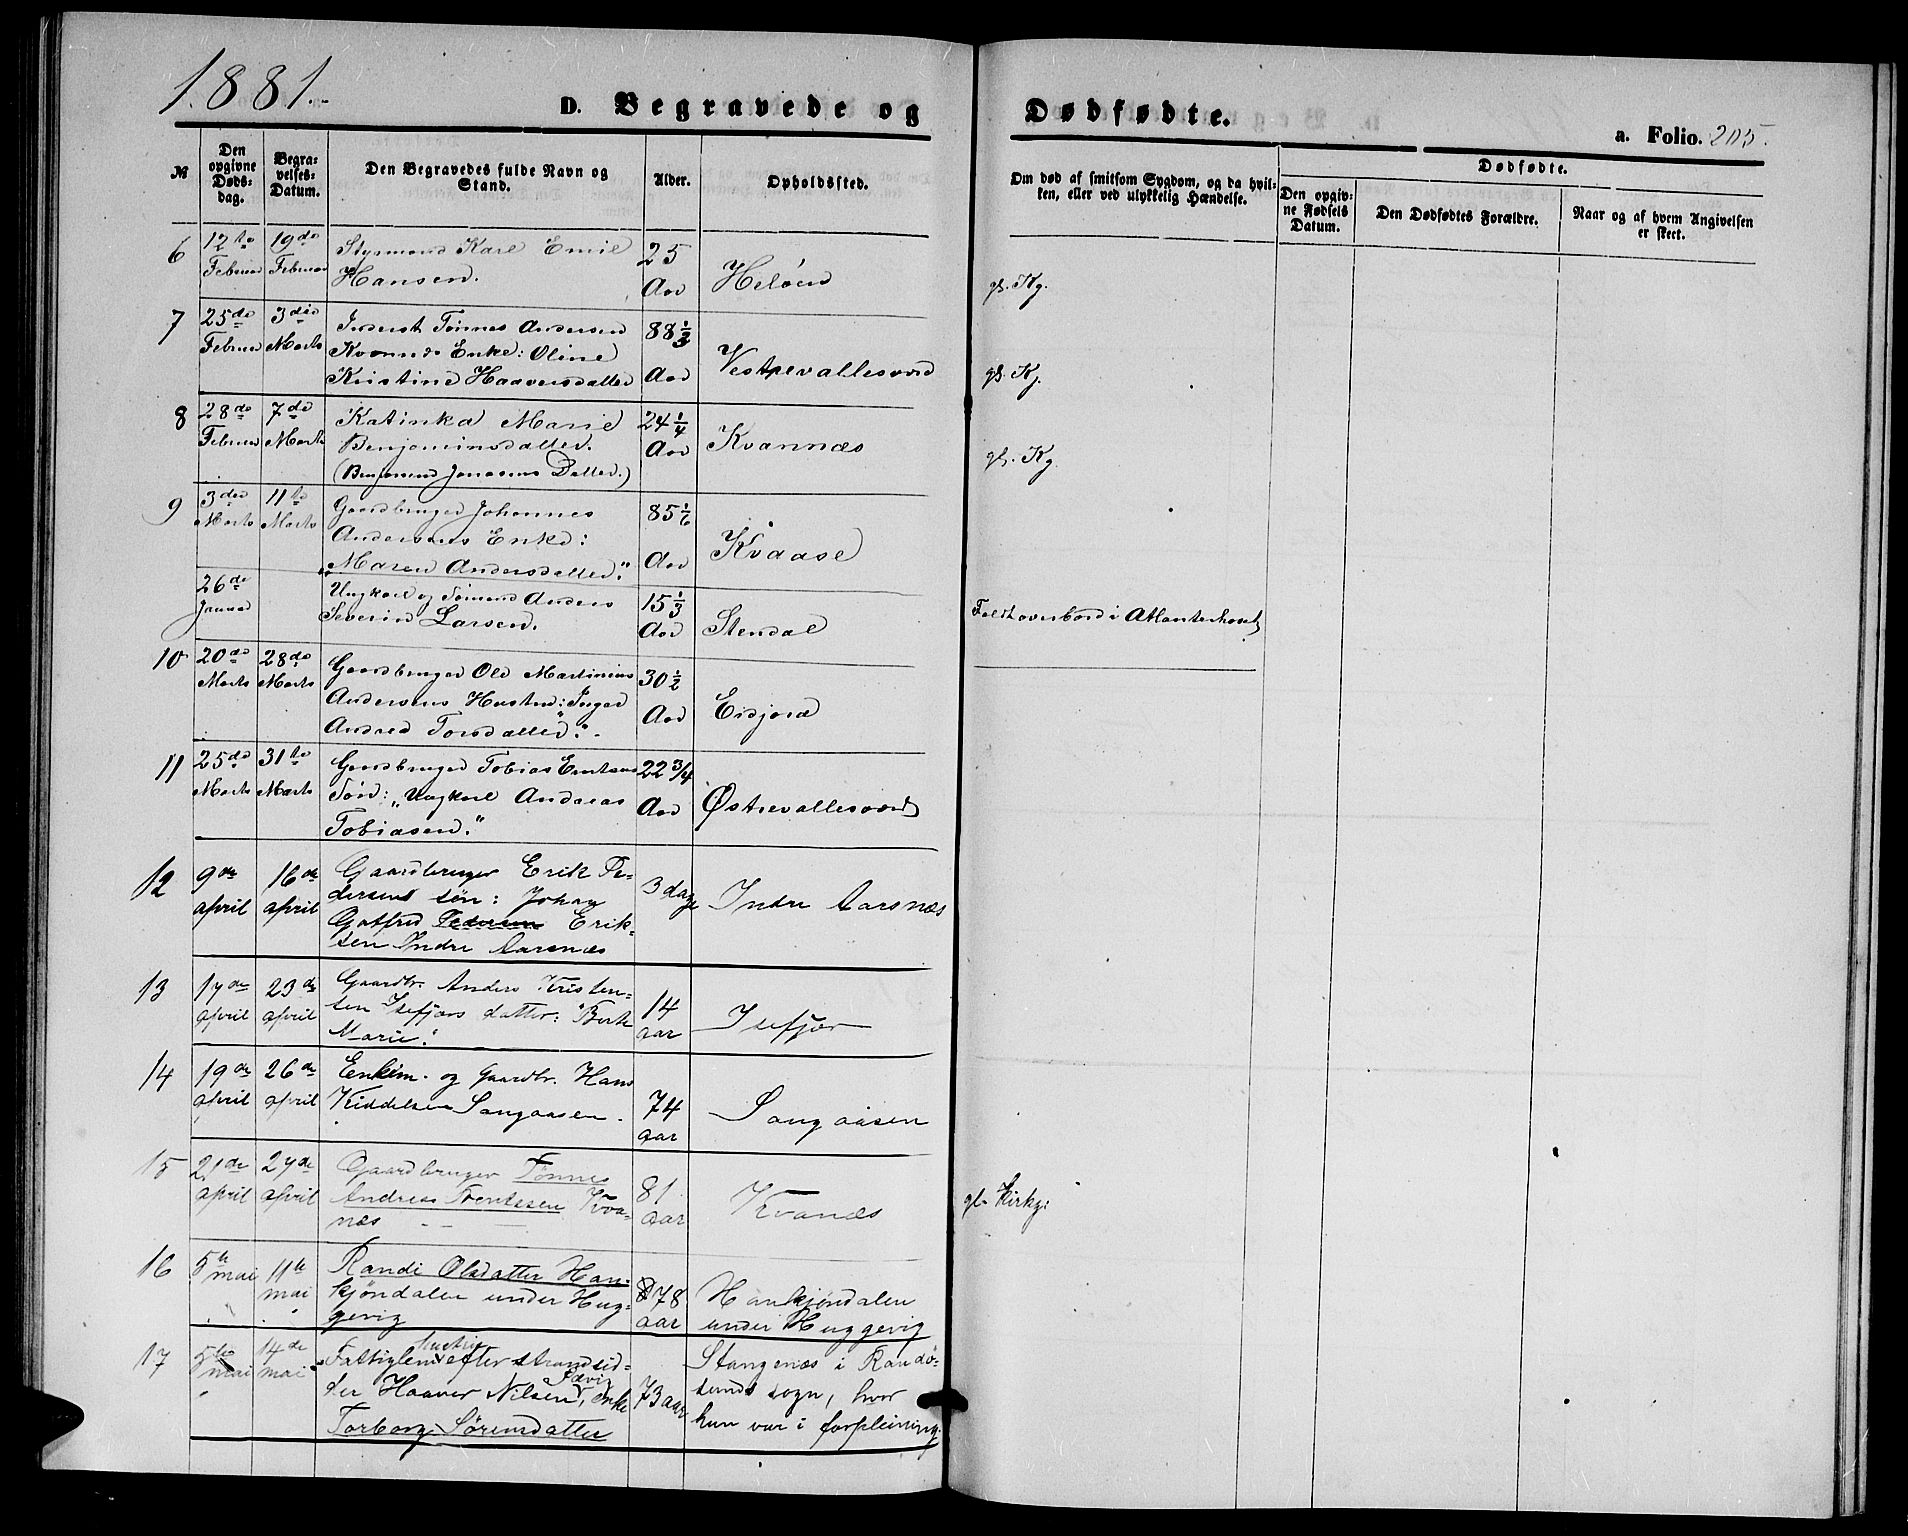 1881.
D. Begravede og Dødfødte.
a. Folio. 205.
№
Den opgivne Døds-dag.
Begra-velses-Datum.
Den Begravedes fulde Navn og Stand.
Alder.
Opholdssted.
Om død af smitsom Sygdom, og da hvil-ken, eller ved ulykkelig Hændelse.
Dødfødte.
Den opgiv-ne Fødsels Datum.
Den Dødfødtes Forældre.
Naar og af hvem Angivelsen er skeet.
6 12te 19de Karl Emil 25
Februar Februar Hansen. Aar Heløen gl. Kg.
7 25de 3die Inderst Tønnes Andersen 88 1/3
Februar Marts Enke: Oline
Kristine Haaversdatter Aar gl. Kg.
8 28de 7de Katinka Marie 24 1/4
Februar Marts Benjaminsdatter. Aar Kvannæs gl. Kg.
(Benjamin Jonasens Datter.)
9 3die 11te Gaardbruger Johannes 85 1/6
Marts Marts Andersens Enke:
"Maren Andersdatter." Aar Kvaase
26de Ungkarl og Sømand Anders 15 1/3
Januar Severin Larsen. Aar Stendal Faldt overbord i Atlanterhavet
10 20de 28de Gaardbruger Ole Martinius 30 1/2
Marts Marts Andersens Hustru: Inger Aar Eidjord
Andrea Torsdatter".
11 25de 31te Gaardbruger Tobias 22 3/4
Marts Marts Søn: "Ungkarl Andreas Aar
Tobiasen."
12 9de 16de Gaardbruger Erik Pe- 3 dage Indre Aarsnæs
april april dersens søn: Johan
Gotfred Pedersen Erik-
sen Indre Aarsnæs
13 17de 23de Gaardbr. Anders Kristen- 14
april april sen Isefjærs datter: "Berte aar Isefjær
Marie."
14 19de 26de Enkem. og Gaardbr. Hans 74
april april Kiddelsen Sangaasen. aar Sangaasen
15 21de 27de Gaardbruger Tønnes 81
april april Andreas Terkelsen Kva- aar Kvanæs gl. Kirkg:
næs
16 5te 11te Randi Olsdatter Han- 78 Hankjøndalen
mai mai kjøndalen under Hug- aar under Huggevig
gevig
17 5te 14de Fattiglem efter strandsid- Stangenæs i Randø-
mai mai der Haaver Nilsen, enke 73 aar sunds sogn, hvor
Torborg Sørensdatter hun var i forpleining.